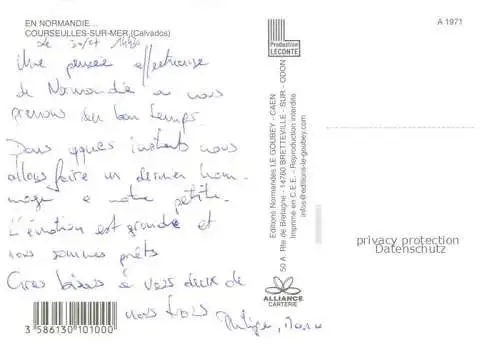 EN NORMANDIE...
COURSEULLES-SUR-MER (Calvados)
Le 30/07 14h30
Une pensée affectueuse
de Normandie où nous
prenons du bon temps.
Dans qques instants nous
allons faire un dernier hom-
mage à notre petite.
L'émotion est grande et
nous sommes prêts
Gros baisers à vous deux de
nous trois
Philippe,
3 586130 101000
Production
LECONTE
Editions Normandes LE GOUBEY - CAEN
50 A - Rte de Bretagne - 14760 BRETTEVILLE - SUR - ODON
Imprimé en C.E.E. - Reproduction interdite
infos@editions-le-goubey.com
ALLIANCE
CARTERIE
A 1971
privacy protection
Datenschutz